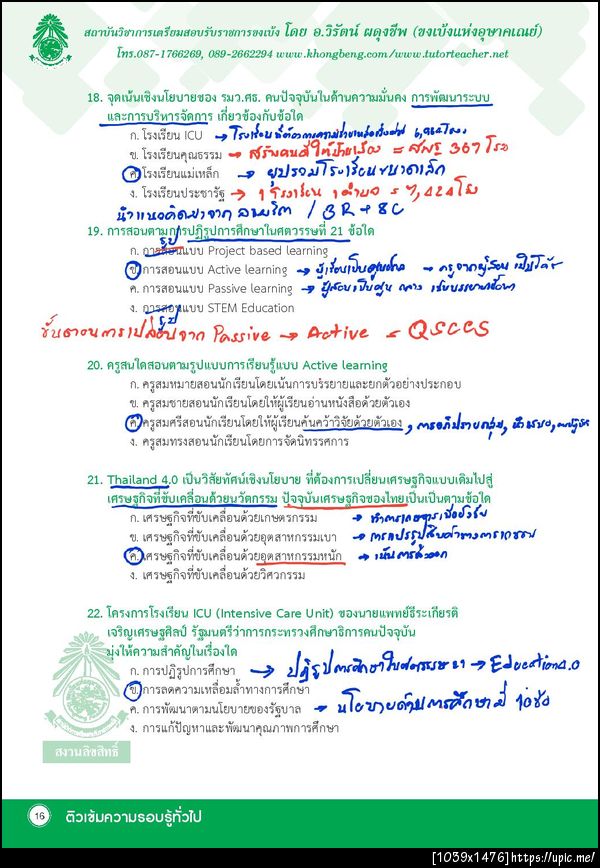 สถาบันวิชาการเตรียมสอบรับราชการขงเบ้ง โดย อ.วิรัตน์ ผดุงชีพ (ขงเบ้งแห่งอุษาคเณย์)
โทร.087-1766269, 089-2662294 www.khongbeng.com /www.tutorteacher.net
18. จุดเน้นเชิงนโยบายของ รมว.ศธ. คนปัจจุบันในด้านความมั่นคง การพัฒนาระบบ
และการบริหารจัดการ เกี่ยวข้องกับข้อใด
ก. โรงเรียน ICU
ข. โรงเรียนคุณธรรม
ค. โรงเรียนแม่เหล็ก → ยุบรวมโรงเรียนขนาดเล็ก
ง. โรงเรียนประชารัฐ → 1 โรงเรียน 1 ตำบล = 7,424 โรง
/ 3R + 8C
19. การสอนตามการปฏิรูปการศึกษาในศตวรรษที่ 21 ข้อใด
ก. การสอนแบบ Project based learning
ข. การสอนแบบ Active learning
ค. การสอนแบบ Passive learning
ง. การสอนแบบ STEM Education
Passive → Active = QSCCS
20. ครูสนใดสอนตามรูปแบบการเรียนรู้แบบ Active learning
ก. ครูสมหมายสอนนักเรียนโดยเน้นการบรรยายและยกตัวอย่างประกอบ
ข. ครูสมชายสอนนักเรียนโดยให้ผู้เรียนอ่านหนังสือด้วยตัวเอง
ค. ครูสมศรีสอนนักเรียนโดยให้ผู้เรียนค้นคว้าวิจัยด้วยตัวเอง
ง. ครูสมทรงสอนนักเรียนโดยการจัดนิทรรศการ
21. Thailand 4.0 เป็นวิสัยทัศน์เชิงนโยบาย ที่ต้องการเปลี่ยนเศรษฐกิจแบบเดิมไปสู่
เศรษฐกิจที่ขับเคลื่อนด้วยนวัตกรรม ปัจจุบันเศรษฐกิจของไทยเป็นเป็นตามข้อใด
ก. เศรษฐกิจที่ขับเคลื่อนด้วยเกษตรกรรม
ข. เศรษฐกิจที่ขับเคลื่อนด้วยอุตสาหกรรมเบา
ค. เศรษฐกิจที่ขับเคลื่อนด้วยอุตสาหกรรมหนัก → เน้นการส่งออก
ง. เศรษฐกิจที่ขับเคลื่อนด้วยวิศวกรรม
22. โครงการโรงเรียน ICU (Intensive Care Unit) ของนายแพทย์ธีระเกียรติ
เจริญเศรษฐศิลป์ รัฐมนตรีว่าการกระทรวงศึกษาธิการคนปัจจุบัน
มุ่งให้ความสำคัญในเรื่องใด
ก. การปฏิรูปการศึกษา → ปฏิรูปการศึกษาในศตวรรษ 21 → Education 4.0
ข. การลดความเหลื่อมล้ำทางการศึกษา
ค. การพัฒนาตามนโยบายของรัฐบาล → นโยบายด้านการศึกษามี 10 ข้อ
ง. การแก้ปัญหาและพัฒนาคุณภาพการศึกษา
สงวนลิขสิทธิ์
16 ติวเข้มความรอบรู้ทั่วไป
[1039x1476] https://upic.me/